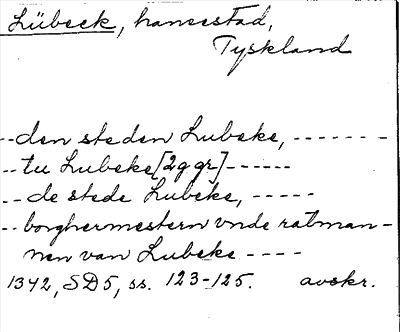 Lübeck, hansestad,
Tyskland
--den steden Lubeke, -------
--tu Lubeke [2 ggr]------
--de stede Lubeke, -----
--borghermestern vnde ratman-
nen van Lubeke ----
1342, SD5, ss. 123-125. avskr.